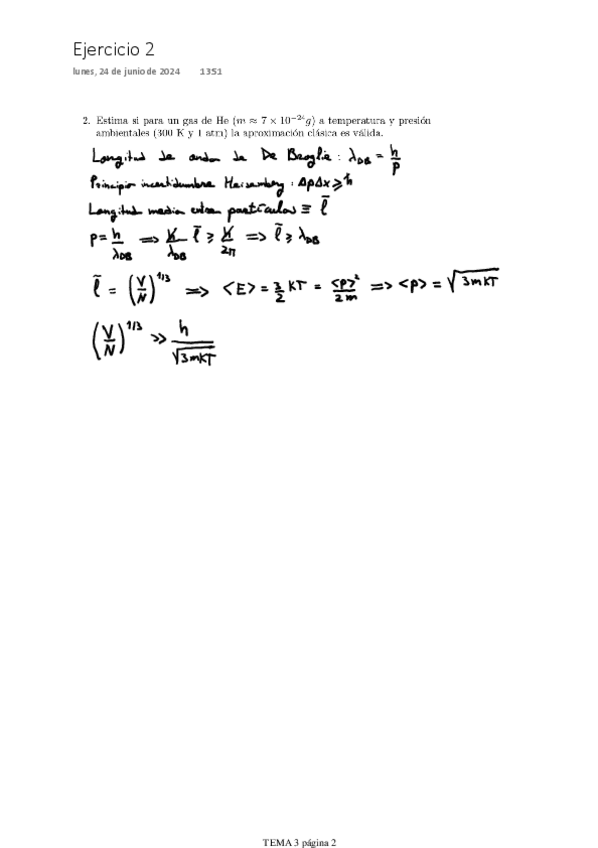 Ejercicio 2
lunes, 24 de junio de 2024 13:51
2. Estima si para un gas de He (m ≈ 7 × 10⁻²⁴g) a temperatura y presión
ambientales (300 K y 1 atm) la aproximación clásica es válida.
Longitud de onda de De Broglie : λ_DB = h/p
Principio incertidumbre Heisenberg : ΔpΔx ≥ ħ
Longitud media entre partículas ≡ l̄
p = h/λ_DB ⇒ h/λ_DB l̄ ≥ h/2π ⇒ l̄ ≥ λ_DB
l̄ = (V/N)^1/3 ⇒ <E> = 3/2 KT = <p>²/2m ⇒ <p> = √3mKT
(V/N)^1/3 >> h/√3mKT
TEMA 3 página 2